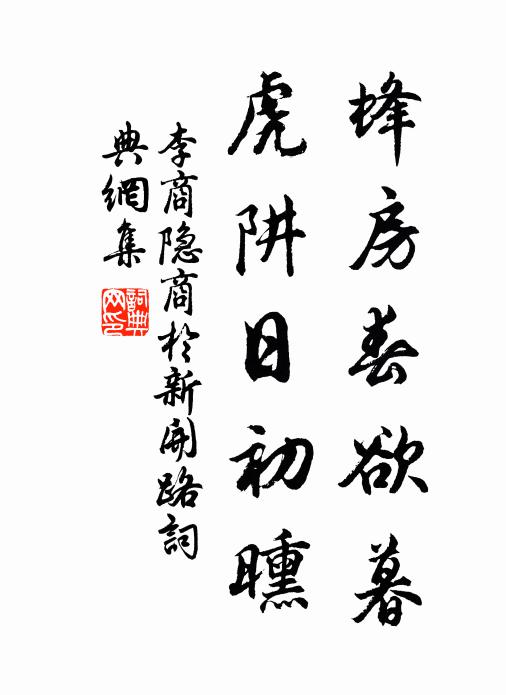 蜂房春欲暮
虎阱日初曛
李商隐商於新開路詞
典網集
詞典網印